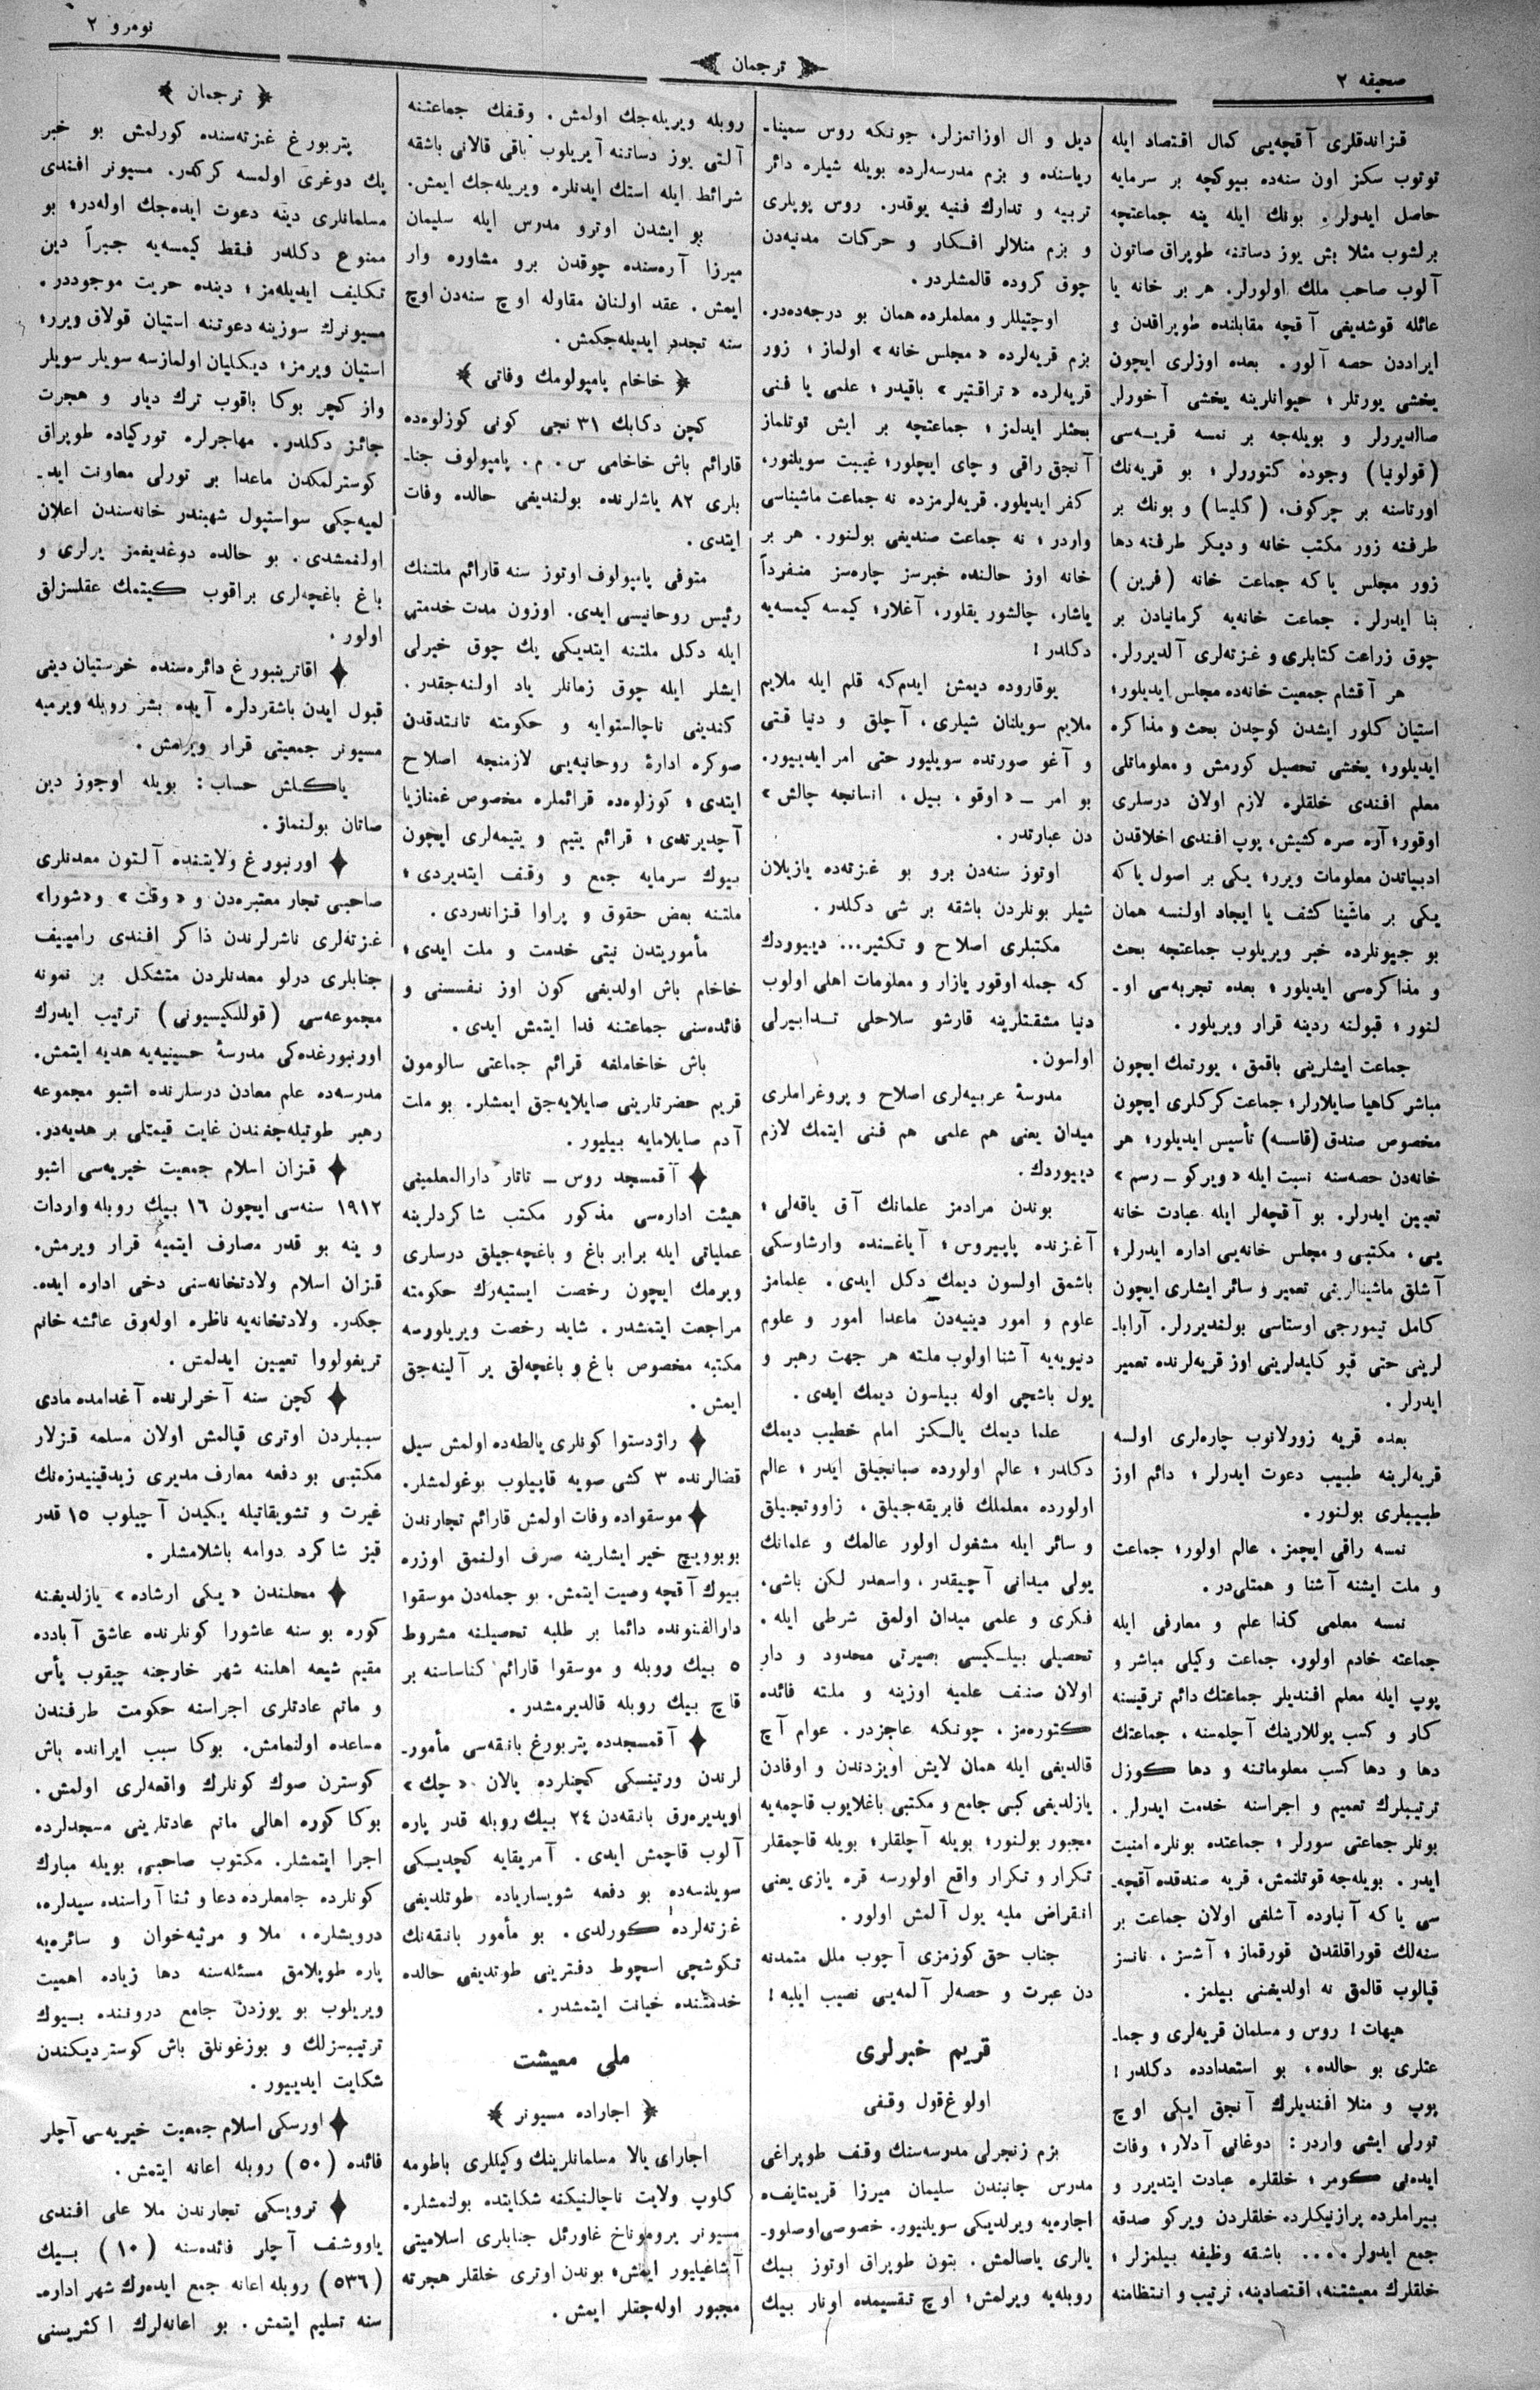 صحیفه ٢
ترجمان
نومرو ٢
قزاندقلری آقچه‌یی کمال اقتصاد ایله
توتوب سکز اون سنه‌ده بیوکچه بر سرمایه
حاصل ایدولر. بونك ایله ینه جماعتچه
برلشوب مثلا بش یوز دساتنه طوپراق صاتون
آلوب صاحب ملك اولورلر. هر بر خانه یا
عائله قوشدیغی آقچه مقابلنده طوپراقدن و
ایراددن حصه آلور. بعده اوزلری ایچون
یخشی یورتلر؛ حیوانلرینه یخشی آخورلر
صالدیررلر و بویله‌جه بر نمسه قریه‌سی
(قولونیا) وجوده کتوررلر؛ بو قریه‌نك
اورتاسنه بر چرکوف، (کلیسا) و بونك بر
طرفنه زور مکتب خانه و دیکر طرفنه دها
زور مجلس یا که جماعت خانه (فرین)
بنا ایدرلر. جماعت خانه‌یه کرمانیادن بر
چوق زراعت کتابلری و غزته‌لری آلدیررلر.
هر آقشام جمعیت خانه‌ده مجلس ایدیلور؛
استیان کلور ایشدن کوچدن بحث و مذاکره
ایدیلور؛ یخشی تحصیل کورمش و معلوماتلی
معلم افندی خلقلره لازم اولان درسلری
اوقور؛ آره صره کشیش، پوپ افندی اخلاقدن
ادبیاتدن معلومات ویرر؛ یکی بر اصول یا که
یکی بر ماشینا کشف یا ایجاد اولنسه همان
بو جیونلرده خبر ویریلوب جماعتچه بحث
و مذاکره‌سی ایدیلور؛ بعده تجربه‌سی او-
لنور؛ قبولنه ردینه قرار ویریلور.
جماعت ایشلرینی باقمق، یورتمك ایچون
مباشر کاهیا صایلارلر؛ جماعت کرکلری ایچون
مخصوص صندق (قاسسه) تأسیس ایدیلور؛ هر
خانه‌دن حصه‌سنه نسبت ایله «ویرکو ـ رسم»
تعیین ایدرلر. بو آقچه‌لر ایله عبادت خانه
یی، مکتبی و مجلس خانه‌یی اداره ایدرلر؛
آشلق ماشینالرینی تعمیر و سائر ایشلری ایچون
کامل تیمورجی اوستاسی بولندیررلر. آرابا-
لرینی حتی قپو کلیدلرینی اوز قریه‌لرنده تعمیر
ایدرلر.
بعده قریه زورلانوب چاره‌لری اولسه
قریه‌لرینه طبیب دعوت ایدرلر؛ دائم اوز
طبیبلری بولنور.
نمسه راقی ایچمز، عالم اولور؛ جماعت
و ملت ایشنه آشنا و همتلی‌در.
نمسه معلمی کذا علم و معارفی ایله
جماعته خادم اولور. جماعت وکیلی مباشر و
پوپ ایله معلم افندیلر جماعتك دائم ترقیسنه
کار و کسب یوللارینك آچلمسنه، جماعتك
دها و دها کسب معلوماتنه و دها کوزل
ترتیبلرك تعمیم و اجراسنه خدمت ایدرلر.
بونلر جماعتی سورلر؛ جماعتده بونلره امنیت
ایدر. بویله‌جه قوتلنمش، قریه صندقده آقچه-
سی یا که آنبارده آشلغی اولان جماعت بر
سنه‌لك قوراقلقدن قورقماز؛ آشسز، نانسز
قیالوب قالمق نه اولدیغنی بیلمز.
هیهات! روس و مسلمان قریه‌لری و جما-
عتلری بو حالده، بو استعدادده دکلدر!
پوپ و منلا افندیلرك آنجق ایکی اوچ
تورلی ایشی واردر: دوغانی آدلار؛ وفات
ایده‌نی کومر؛ خلقلره عبادت ایتدیرر و
بیراملرده پرازنیکلرده خلقلردن ویرکو صدقه
جمع ایدولر.... باشقه وظیفه بیلمزلر؛
خلقلرك معیشتنه، اقتصادینه، ترتیب و انتظامنه
دیل و ال اوزاتمزلر، چونکه روس سمینا-
ریاسنده و بزم مدرسه‌لرده بویله شیلره دائر
تربیه و تدارك فنیه یوقدر. روس پوپلری
و بزم منلالر افکار و حرکات مدنیه‌دن
چوق کروده قالمشلردر.
اوچتیللر و معلملرده همان بو درجه‌ده‌در.
بزم قریه‌لرده «مجلس خانه» اولماز؛ زور
قریه‌لرده «تراقتیر» باقیدر؛ علمی یا فنی
بحثلر ایدلمز؛ جماعتچه بر ایش توتلماز
آنجق راقی و چای ایچلور؛ غیبت سویلنور،
کفر ایدیلور. قریه‌لرمزده نه جماعت ماشیناسی
واردر؛ نه جماعت صندیغی بولنور. هر بر
خانه اوز حالنده خبرسز چاره‌سز منفرداً
یاشار، چالشور یقلور، آغلار؛ کیمسه کیمسه‌یه
دکلدر!
یوقاروده دیمش ایدم‌که قلم ایله ملایم
ملایم سویلنان شیلری، آچلق و دنیا قتی
و آغو صورتده سویلیور حتی امر ایدیبیور.
بو امر ـ «اوقو، بیل، انسانجه چالش»
دن عبارتدر.
اوتوز سنه‌دن برو بو غزته‌ده یازیلان
شیلر بونلردن باشقه بر شی دکلدر.
مکتبلری اصلاح و تکثیر... دیبیوردك
که جمله اوقور یازار و معلومات اهلی اولوب
دنیا مشقتلرینه قارشو سلاحلی تدابیرلی
اولسون.
مدرسۀ عربیه‌لری اصلاح و پروغراملری
میدان یعنی هم علمی هم فنی ایتمك لازم
دیبوردك.
بوندن مرادمز علمانك آق یاقه‌لی؛
آغزنده پاپیروس؛ آیاغنده وارشاوسکی
باشمق اولسون دیمك دکل ایدی. علمامز
علوم و امور دینیه‌دن ماعدا امور و علوم
دنیویه‌یه آشنا اولوب ملته هر جهت رهبر و
یول باشچی اوله بیلسون دیمك ایدی.
علما دیمك یالکز امام خطیب دیمك
دکلدر؛ عالم اولورده صبانجیلق ایدر؛ عالم
اولورده معلملك فابریقه‌جیلق، زاووتجیلق
و سائر ایله مشغول اولور عالمك و علمانك
یولی میدانی آچیقدر، واسعدر لکن باشی،
فکری و علمی میدان اولمق شرطی ایله.
تحصیلی بیلکیسی بصیرتی محدود و دار
اولان صنف علمیه اوزینه و ملته فائده
کتوره‌مز، چونکه عاجزدر. عوام آچ
قالدیغی ایله همان لایش اویزدندن و اوفادن
یازلدیغی کبی جامع و مکتبی باغلایوب قاچمه‌یه
مجبور بولنور؛ بویله آچلقلر؛ بویله قاچمقلر
تکرار و تکرار واقع اولورسه قره یازی یعنی
انقراض ملیه یول آلمش اولور.
جناب حق کوزمزی آچوب ملل متمدنه
دن عبرت و حصه‌لر آلمه‌یی نصیب ایلیه!
قریم خبرلری
اولوغ‌قول وقفی
بزم زنجرلی مدرسه‌سنك وقف طوپراغی
مدرس جانبندن سلیمان میرزا قریمتایفه
اجاره‌یه ویرلدیکی سویلنیور. خصوصی اوصلوو-
یالری یاصالمش. بتون طوپراق اوتوز بیك
روبله‌یه ویرلمش؛ اوچ تقسیمده اونار بیك
روبله ویریله‌جك اولمش. وقفك جماعتنه
آلتی یوز دساتنه آیریلوب باقی قالانی باشقه
شرائط ایله استك ایدنلره ویریله‌جك ایمش.
بو ایشدن اوترو مدرس ایله سلیمان
میرزا آره‌سنده چوقدن برو مشاوره وار
ایمش. عقد اولنان مقاوله اوچ سنه‌دن اوچ
سنه تجدد ایدیله‌جکمش.
خاخام پامپولومك وفاتی
کچن دکابك ٣١ نجی کونی کوزلوه‌ده
قارائم باش خاخامی س. م. پامپولوف جنا-
بلری ٨٢ یاشلرنده بولندیغی حالده وفات
ایتدی.
متوفی پامپولوف اوتوز سنه قارائم ملتنك
رئیس روحانیسی ایدی. اوزون مدت خدمتی
ایله دکل ملتنه ایتدیکی پك چوق خیرلی
ایشلر ایله چوق زمانلر یاد اولنه‌جقدر.
کندینی ناچالستوایه و حکومته تانتدقدن
صوکره ادارۀ روحانیه‌یی لازمنجه اصلاح
ایتدی؛ کوزلوه‌ده قرائملره مخصوص غمنازیا
آچدیرتدی؛ قرائم یتیم و یتیمه‌لری ایچون
بیوك سرمایه جمع و وقف ایتدیردی؛
ملتنه بعض حقوق و پراوا قزاندردی.
مأموریتدن نیتی خدمت و ملت ایدی؛
خاخام باش اولدیغی کون اوز نفسنی و
فائده‌سنی جماعتنه فدا ایتمش ایدی.
باش خاخاملغه قرائم جماعتی سالومون
قریم حضرتلرینی صایلایه‌جق ایمشلر. بو ملت
آدم صایلامایه بیلیور.
آقمسجد روس ـ تاتار دارالمعلمینی
هیئت اداره‌سی مذکور مکتب شاکردلرینه
عملیاتی ایله برابر باغ و باغچه‌جیلق درسلری
ویرمك ایچون رخصت ایستیه‌رك حکومته
مراجعت ایتمشدر. شاید رخصت ویریلورسه
مکتبه مخصوص باغ و باغچه‌لق یر آلینه‌جق
ایمش.
راژدستوا کونلری یالطه‌ده اولمش سیل
قضالرنده ٣ کشی صویه قاپیلوب بوغولمشلر.
موسقواده وفات اولمش قارائم تجارندن
بوبوویچ خیر ایشارینه صرف اولنمق اوزره
بیوك آقچه وصیت ایتمش. بو جمله‌دن موسقوا
دارالفنونده دائما بر طلبه تحصیلنه مشروط
٥ بیك روبله و موسقوا قارائم کناساسنه بر
قاچ بیك روبله قالدیرمشدر.
آقمسجدده پتربورغ بانقه‌سی مأمور-
لرندن ورتینسکی کچنلرده یالان «چك»
اویدیره‌رق بانقه‌دن ٢٤ بیك روبله قدر پاره
آلوب قاچمش ایدی. آمریقایه کچدیکی
سویلنسه‌ده بو دفعه شویساریاده طوتلدیغی
غزته‌لرده کورلدی. بو مأمور بانقه‌نك
تکوشچی اسچوط دفترینی طوتدیغی حالده
خدمتنده خیانت ایتمشدر.
ملی معیشت
اجاراده مسیونر
اجارای یالا مسلمانلرینك وکیللری باطومه
کلوپ ولایت ناچالنیکنه شکایتده بولنمشلره
مسیونر یروموناخ غاورئل جنابلری اسلامیتی
آشاغیلیور ایمش؛ بوندن اوتری خلقلر هجرته
مجبور اوله‌جقلر ایمش.
ترجمان
پتربورغ غزته‌سنده کورلمش بو خبر
پك دوغری اولمسه کرکدر. مسیونر افندی
مسلمانلری دینه دعوت ایده‌جك اوله‌در؛ بو
ممنوع دکلدر فقط کیمسه‌یه جبراً دین
تکلیف ایدیله‌مز؛ دینده حریت موجوددر.
مسیونرك سوزینه دعوتنه استیان قولاق ویرر؛
استیان ویرمز؛ دیکلیان اولمازسه سویلر سویلر
واز کچر بوکا باقوب ترك دیار و هجرت
جائز دکلدر. مهاجرلره تورکیاده طوپراق
کوسترلمکدن ماعدا بر تورلی معاونت اید-
لمیه‌جکی سواستپول شهبندر خانه‌سندن اعلان
اولنمشدی. بو حالده دوغدیغمز یرلری و
باغ باغچه‌لری براقوب کیتمك عقلسزلق
اولور.
اقاترینبورغ دائره‌سنده خرستیان دینی
قبول ایدن باشقردلره آیده بشر روبله ویرمیه
مسیونر جمعیتی قرار ویرمش.
یاکلش حساب: بویله اوجوز دین
صاتان بولنماز.
اورنبورغ ولایتنده آلتون معدنلری
صاحبی تجار معتبره‌دن و «وقت» و «شورا»
غزته‌لری ناشرلرندن ذاکر افندی رامییف
جنابلری درلو معدنلردن متشکل بر نمونه
مجموعه‌سی (قوللکیسیونی) ترتیب ایدرك
اورنبورغده‌کی مدرسۀ حسینیه‌یه هدیه ایتمش.
مدرسه‌ده علم معادن درسلرنده اشبو مجموعه
رهبر طوتیله‌جغندن غایت قیمتلی بر هدیه‌در.
قزان اسلام جمعیت خیریه‌سی اشبو
١٩١٢ سنه‌سی ایچون ١٦ بیك روبله واردات
و ینه بو قدر مصارف ایتمیه قرار ویرمش.
قزان اسلام ولادتخانه‌سنی دخی اداره ایده-
جکدر. ولادتخانه‌یه ناظره اوله‌رق عائشه خانم
تریغولووا تعیین ایدلمش.
کچن سنه آخرلرنده آغدامده مادی
سببلردن اوتری قپالمش اولان مسلمه قزلار
مکتبی بو دفعه معارف مدیری زیدقینیدزه‌نك
غیرت و تشویقاتیله یکیدن آچیلوب ١٥ قدر
قیز شاکرد دوامه باشلامشلر.
محلندن «یکی ارشاده» یازلدیغنه
کوره بو سنه عاشورا کونلرنده عاشق آبادده
مقیم شیعه اهلنه شهر خارجنه چیقوب یأس
و ماتم عادتلری اجراسنه حکومت طرفندن
مساعده اولنمامش. بوکا سبب ایرانده باش
کوسترن صوك کونلرك واقعه‌لری اولمش.
بوکا کوره اهالی ماتم عادتلرینی مسجدلرده
اجرا ایتمشلر. مکتوب صاحبی بویله مبارك
کونلرده جامعلرده دعا و ثنا آراسنده سیدلره،
درویشلره، ملا و مرثیه‌خوان و سائره‌یه
پاره طوپلامق مسئله‌سنه دها زیاده اهمیت
ویریلوب بو یوزدن جامع دروننده بیوك
ترتیبسزلك و بوزغونلق باش کوستردیکندن
شکایت ایدیبیور.
اورسکی اسلام جمعیت خیریه‌سی آچلر
فائده (٥٠) روبله اعانه ایتمش.
ترویسکی تجارندن ملا علی افندی
یاووشف آچلر فائده‌سنه (١٠) بیك
(٥٣٦) روبله اعانه جمع ایده‌رك شهر اداره-
سنه تسلیم ایتمش. بو اعانه‌لرك اکثریسنی